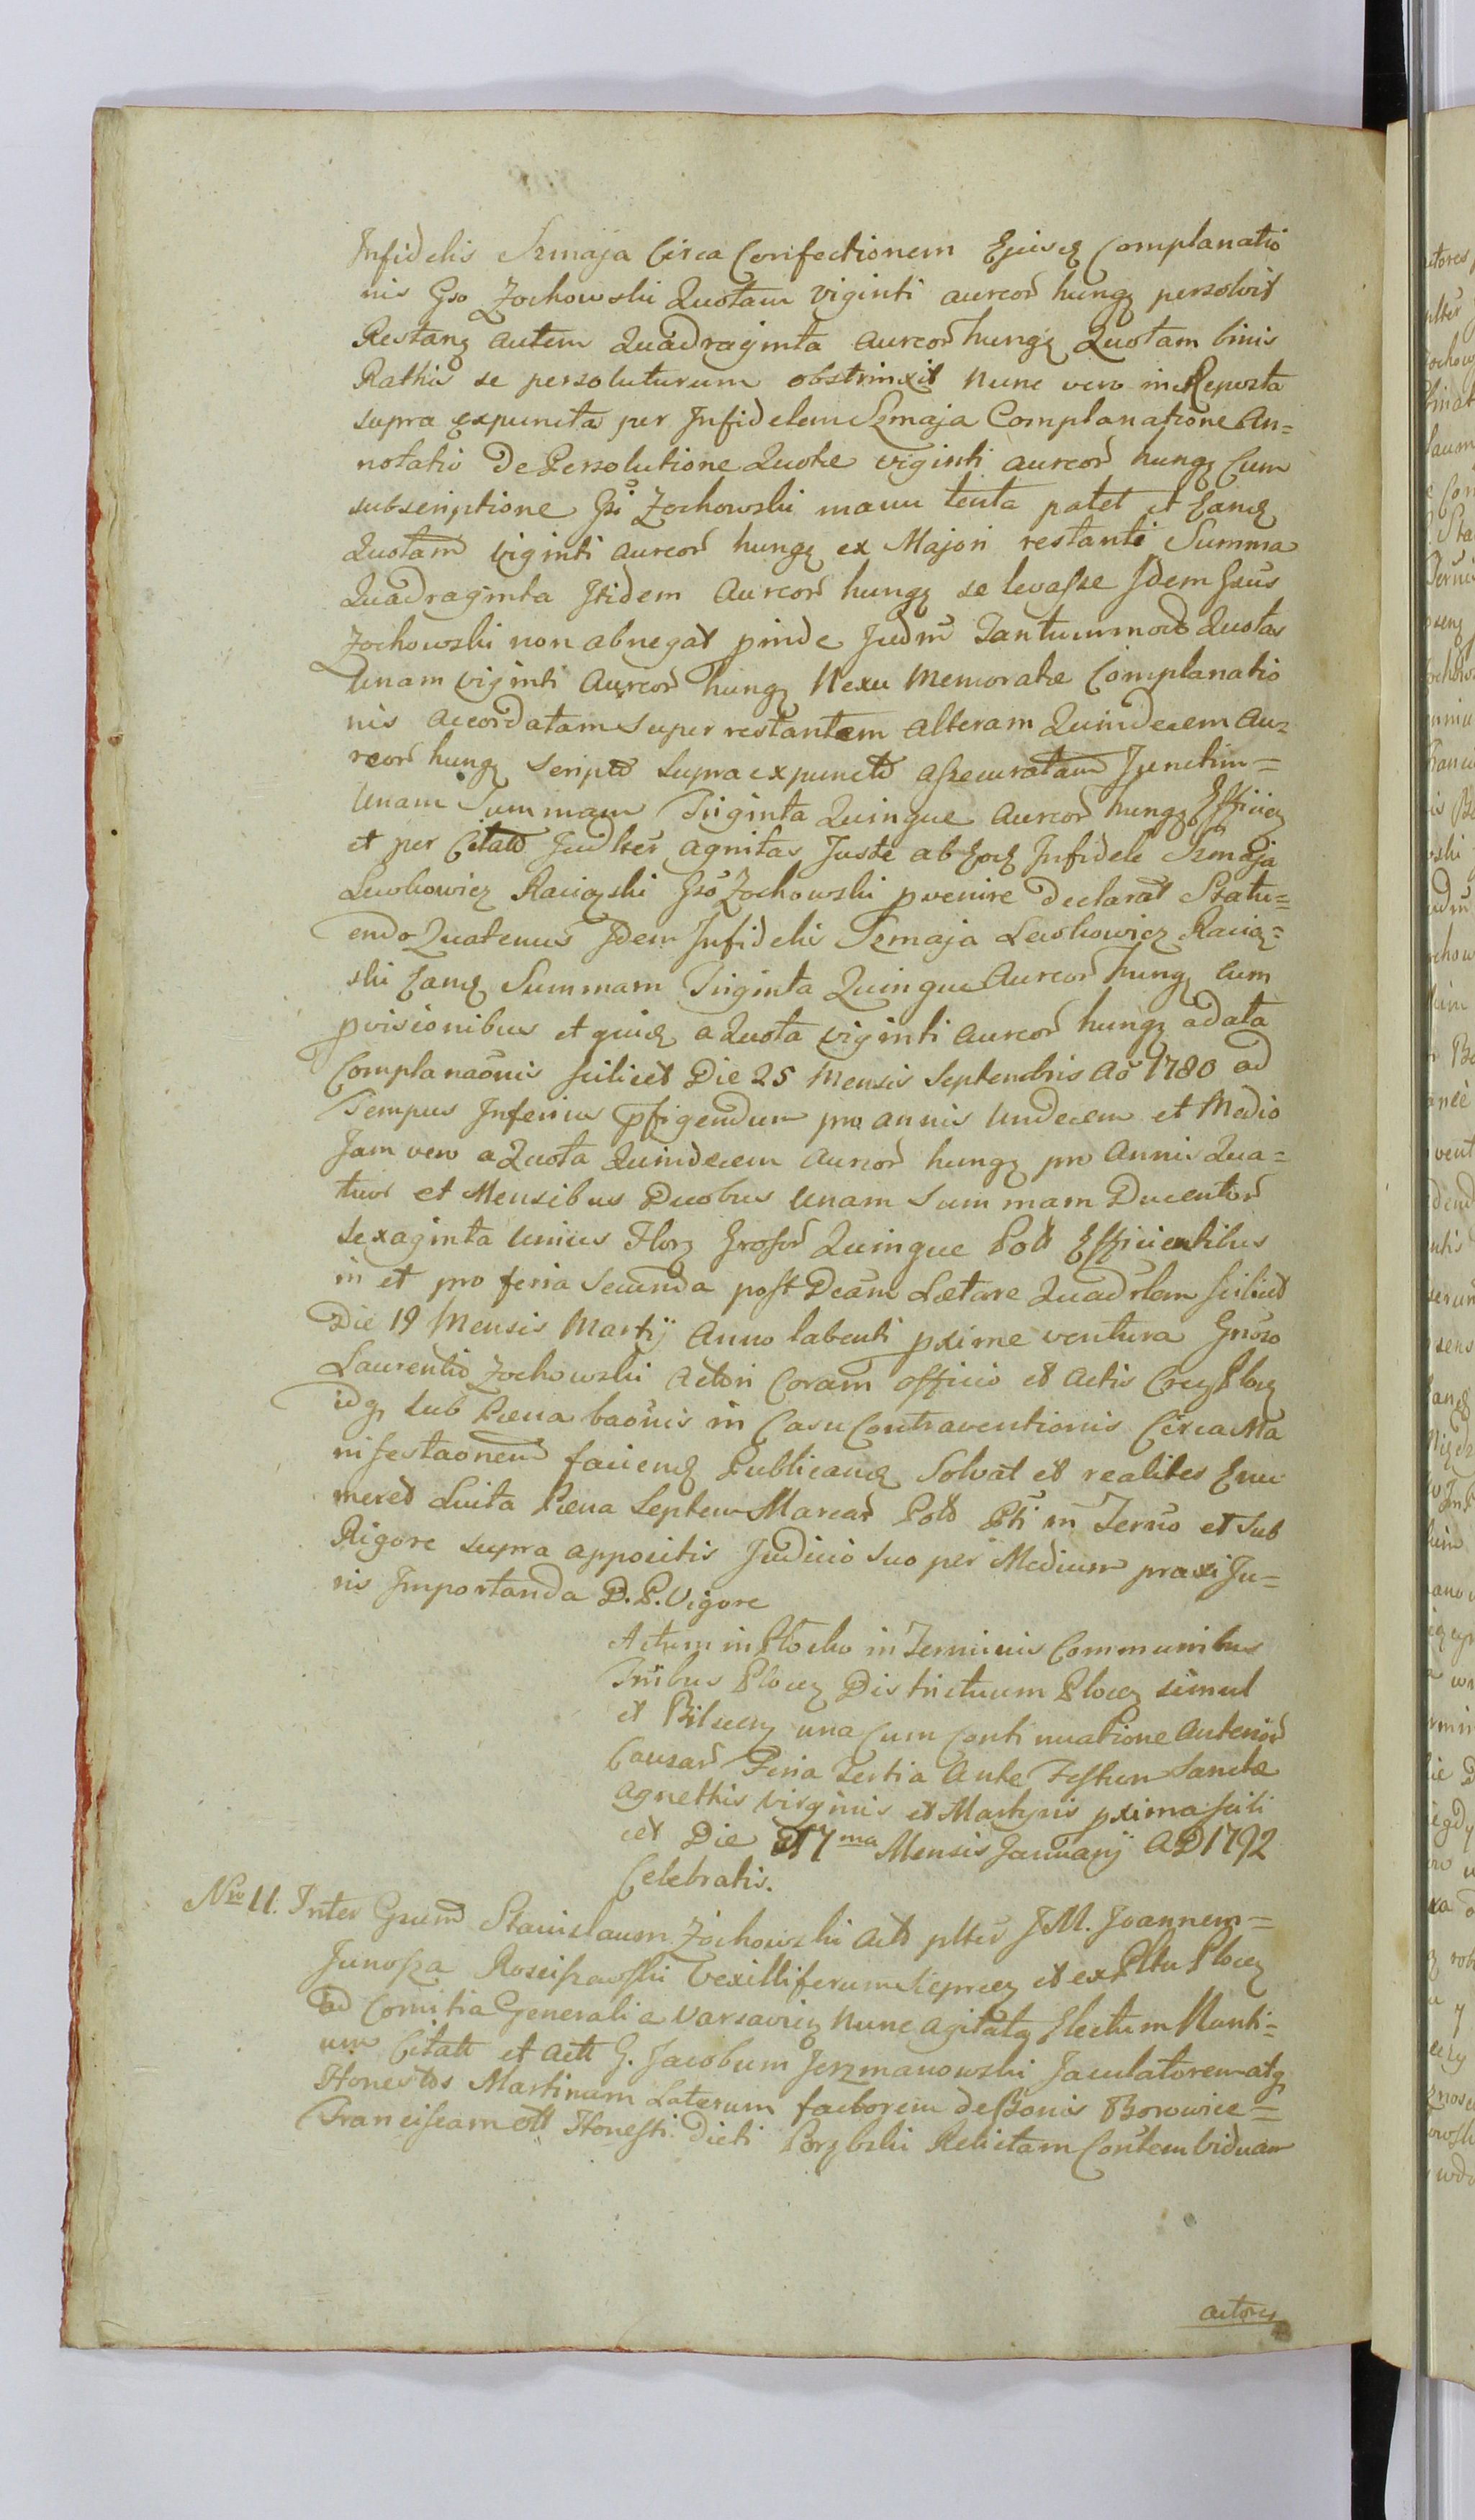 Infidelis Szmaja Circa Confectionem Ejusq Complanatio
nis Gso Zochowski Quotam viginti aureor hungz persolvit
Restanz autem Quadraginta aureor hungz Quotam binis
Rathis se persoluturum obstrinxit Nunc vero in Reposta
supra expuncta per Infidelem Szmaja Complanatione An=
notatio De Persolutione Quotæ viginti aureor hungz Cum
subscriptione Gsi Zochowski manu tenta patet et Eanq
Quotam viginti aureor hungz ex Majori restanti Summa
Quadraginta Itidem Aureor hungz se levasse Idem Gsus
Zochowski non abnegat pinde Judm Tantummodo Quotas
Unam viginti Aureor hungz Nexu Memoratæ Complanatio
nis accordatam super restantem alteram Quindecem Au=
reor hungz Scripto Supra expuncto assecuratam Junctim=
Unam Summam Triginta Quinque Aureor hungz Efficien
et per Citato Judlter agnitas Juste ab Eoq Infidele Szmaja
Lewkowicz Raciązki Gso Zochowski pvenire Declarat Statu=
endo Quatenus Idem Infidelis Szmaja Lewkowicz Raciąz=
ski Eanq Summam Triginta Quinque Aureor hungz Cum
pvisionibus et quiq a Quota viginti aureor hungz a data
Complanaonis scilicet Die 25 Mensis Septembris Ao 1780 ad
Tempus Inferius pfigendum pro annis Undecem et Medio
Jam vero a Quota Quindecem aureor hungz pro Annis Qua=
tuor et Mensibus Duobus Unam Summam Ducentor
Sexaginta Unius Florz Grossor Quinque Poll Efficientibus
in et pro feria Secunda post Dcam Lætare Quadrlem scilicet
Die 19 Mensis Martij Anno labenti pxime ventura Gnoso
Laurentio Zochowski Actori Coram officio et Actis Crcz Plocz
idqz sub Pæna baonis in Casu Contraventionis Circa Ma
nifestaonem facienq Publicanq Solvat et realites Enu
meret Luita Pæna Septem Marcar Poll Pti in Termo et Sub
Rigore supra appositis Judicio Suo per Medium praxi Ju=
ris Importanda D. P. Vigore
Actum in Płocko in Terminis Communibus
Tribus Plocz Districtuum Plocz simul
et Bilscen una Cum Continuatione Anterior
Causar Feria Tertia Ante Festum Sanctæ
Agnethis Virginis et Martyris pxima scili
cet Die 17ma Mensis Januarij A D 1792
Celebratis.
Nro 11. Inter Gsum Stanislaum Zochowski Act plter J M. Joannem=
Junosza Rosciszewski Vexilliferum Sieprcz et ex Pltu Plocz
ad Comitia Generalia Varsavien nunc agitata Electum Nunti=
um Citatt et Actt G. Jacobum Jerzmanowski Jaculatorem atqz
Honestos Martinum Laterum factorem de Bonis Borowice=
Franciscam ott Honesti Dicti Porzbski Relictam Contem viduam
actores